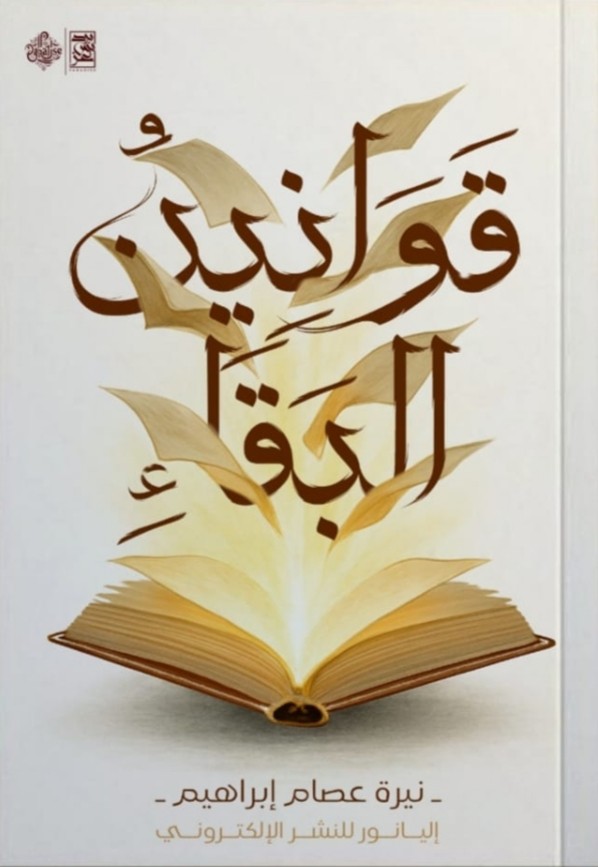 قَوَانِينُ
البَقَاءِ
- نيرة عصام إبراهيم -
إليانور للنشر الإلكتروني